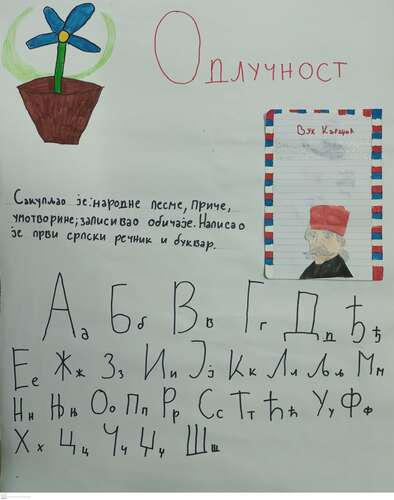 Одлучност
Вук Караџић
Сакупљао је: народне песме, приче,
умотворине; записивао обичаје. Написао
је први српски речник и буквар.
А а Б б В в Г г Д д Ђ ђ
Е е Ж ж З з И и Ј ј К к Л л Љ љ М м
Н н Њ њ О о П п Р р С с Т т Ћ ћ У у Ф ф
Х х Ц ц Ч ч Џ џ Ш ш